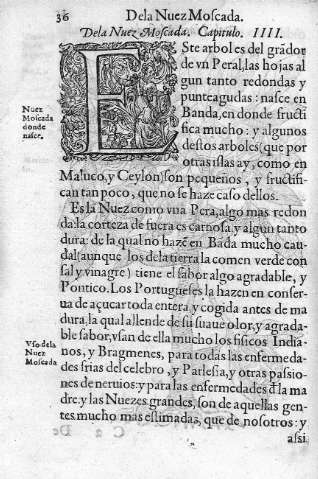 36
De la Nuez Moscada.
De la Nuez Moscada. Capitulo. IIII.
ESte arbol es del grãdor
de vn Peral, las hojas al
gun tanto redondas y
punteagudas: nasce en
Banda, en donde fructi
fica mucho: y algunos
destos arboles (que por
otras islas ay, como en
Maluco, y Ceylon) son pequeños, y fructifi-
can tan poco, que no se haze caso dellos.
Nuez
Moscada
donde
nasce.
Es la Nuez como vna Pera, algo mas redon
da: la corteza de fuera es carnosa, y algun tanto
dura: de la qual no hazẽ en Bãda mucho cau-
dal (aunque los de la tierra la comen verde con
sal y vinagre) tiene el sabor algo agradable, y
Pontico. Los Portugueses la hazen en conser-
ua de açucar toda entera, y cogida antes de ma
dura, la qual allende de su suaue olor, y agrada-
ble sabor, vsan de ella mucho los fisicos India-
nos, y Bragmenes, para todas las enfermeda-
des frias del celebro, y Parlesia, y otras passio-
nes de neruios: y para las enfermedades đ la ma
dre. y las Nuezes grandes, son de aquellas gen-
tes mucho mas estimadas, que de nosotros: y
Vso de la
Nuez
Moscada
assi